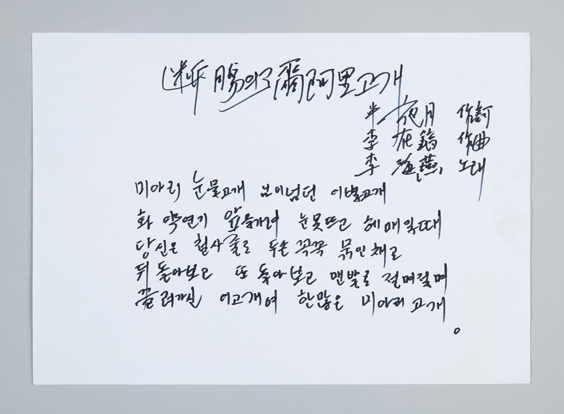 斷腸의 彌阿里고개
半夜月 作詞
李在鎬 作曲
李海燕, 노래
미아리 눈물고개 님이넘던 이별고개
화약연기 앞을가려 눈못뜨고 헤매일때
당신은 철사줄로 두손 꼭꼭 묶인채로
뒤돌아보고 또 돌아보고 맨발로 절며절며
끌려가신 이고개여 한많은 미아리고개